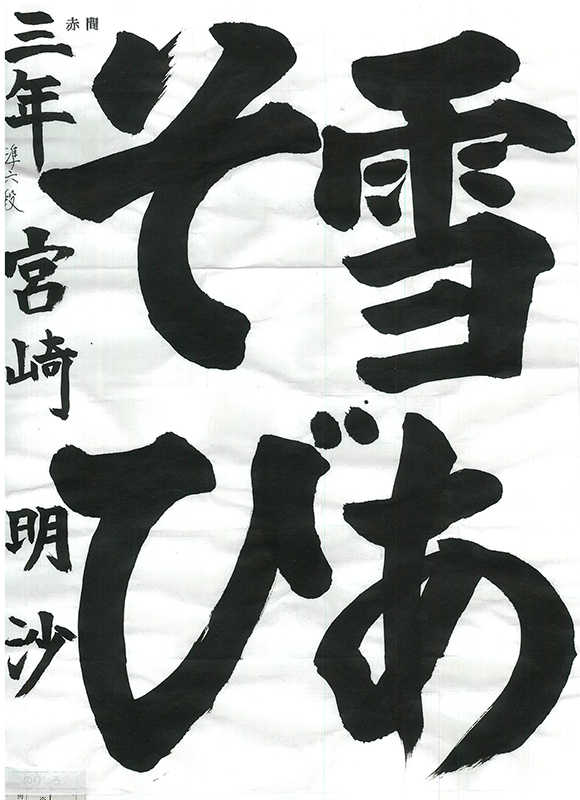 雪あ
そび
赤間
三年 宮崎 明沙
準六段
のりしろ